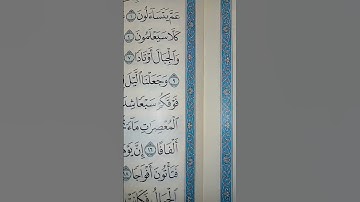 عَمَّ يَتَسَآءَلُونَ ١
كَلَّا سَيَعۡلَمُونَ ٤
وَٱلۡجِبَالَ أَوۡتَادٗا ٧
٩ وَجَعَلۡنَا ٱلَّيۡلَ
فَوۡقَكُمۡ سَبۡعٗا شِدَ
ٱلۡمُعۡصِرَٰتِ مَآءٗ
أَلۡفَافًا ١٦ إِنَّ يَوۡمَ
فَتَأۡتُونَ أَفۡوَاجٗا
ٱلۡجِبَالُ فَكَانَتۡ